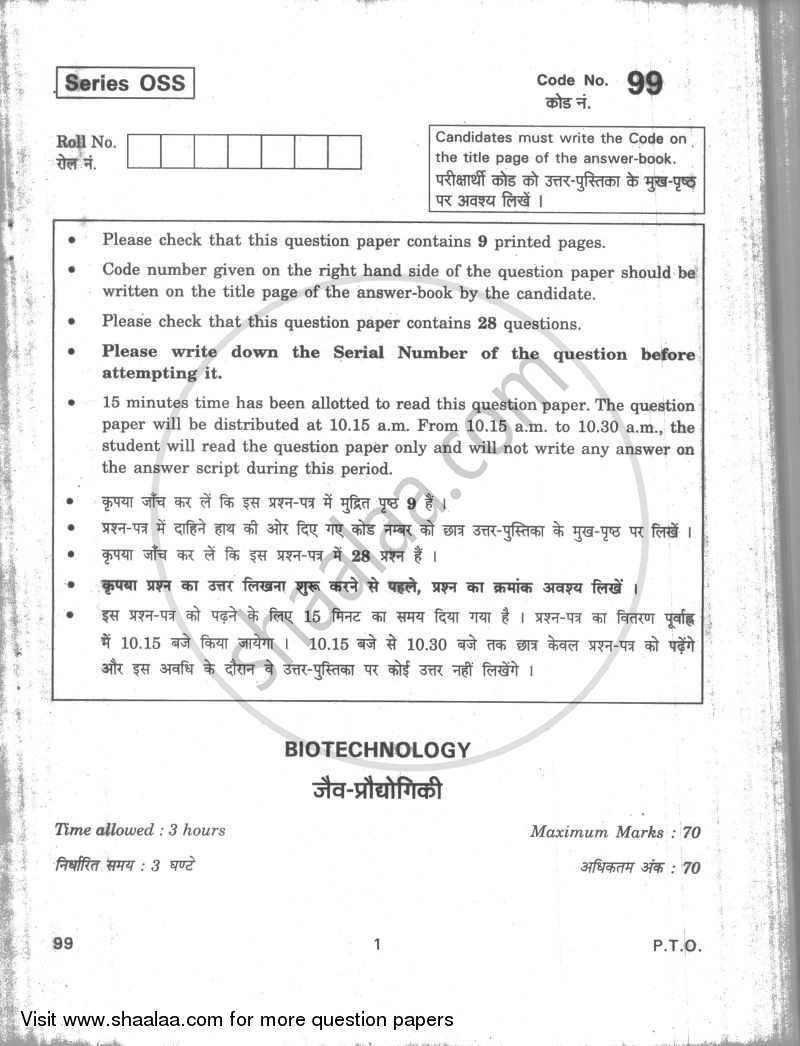 Series OSS
Code No. 99
कोड नं.
Roll No.
रोल नं.
Candidates must write the Code on
the title page of the answer-book.
परीक्षार्थी कोड को उत्तर-पुस्तिका के मुख-पृष्ठ
पर अवश्य लिखें ।
• Please check that this question paper contains 9 printed pages.
• Code number given on the right hand side of the question paper should be
written on the title page of the answer-book by the candidate.
• Please check that this question paper contains 28 questions.
• Please write down the Serial Number of the question before
attempting it.
• 15 minutes time has been allotted to read this question paper. The question
paper will be distributed at 10.15 a.m. From 10.15 a.m. to 10.30 a.m., the
student will read the question paper only and will not write any answer on
the answer script during this period.
• कृपया जाँच कर लें कि इस प्रश्न-पत्र में मुद्रित पृष्ठ 9 हैं ।
• प्रश्न-पत्र में दाहिने हाथ की ओर दिए गए कोड नम्बर को छात्र उत्तर-पुस्तिका के मुख-पृष्ठ पर लिखें ।
• कृपया जाँच कर लें कि इस प्रश्न-पत्र में 28 प्रश्न हैं ।
• कृपया प्रश्न का उत्तर लिखना शुरू करने से पहले, प्रश्न का क्रमांक अवश्य लिखें ।
• इस प्रश्न-पत्र को पढ़ने के लिए 15 मिनट का समय दिया गया है । प्रश्न-पत्र का वितरण पूर्वाह्न
में 10.15 बजे किया जायेगा । 10.15 बजे से 10.30 बजे तक छात्र केवल प्रश्न-पत्र को पढ़ेंगे
और इस अवधि के दौरान वे उत्तर-पुस्तिका पर कोई उत्तर नहीं लिखेंगे ।
shaalaa.com
BIOTECHNOLOGY
जैव-प्रौद्योगिकी
Time allowed : 3 hours
Maximum Marks : 70
निर्धारित समय : 3 घण्टे
अधिकतम अंक : 70
99
1
P.T.O.
Visit www.shaalaa.com for more question papers